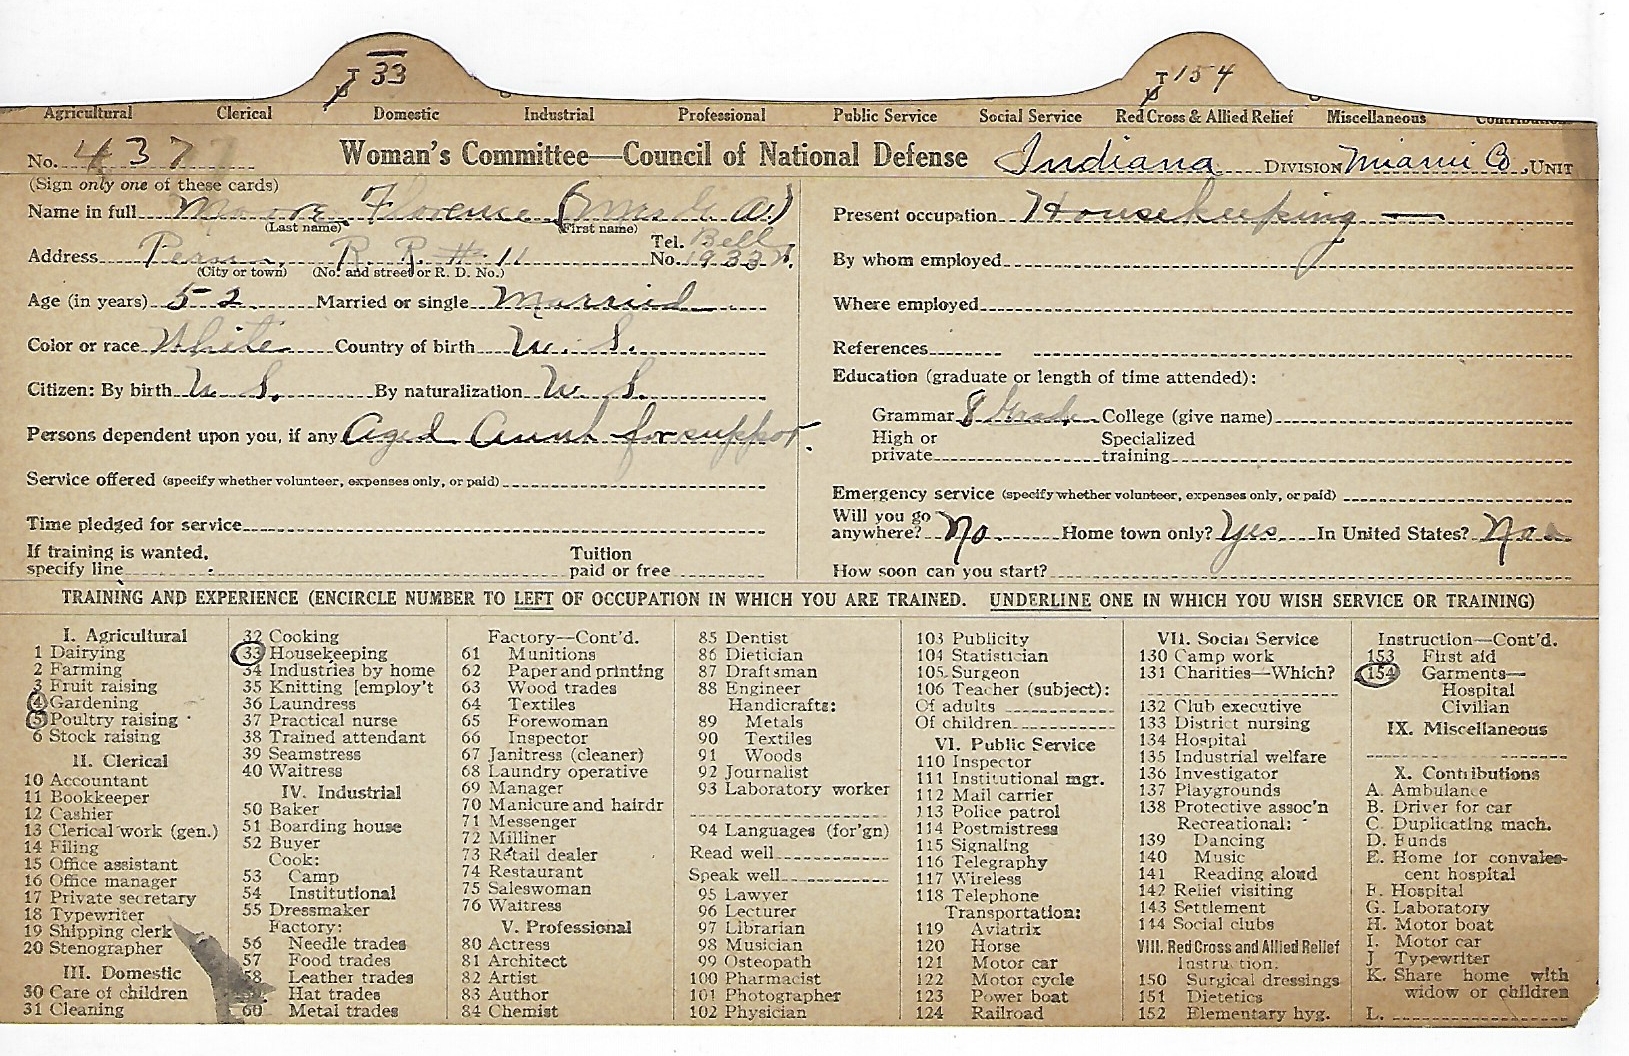 T 33
T 154
Agricultural Clerical Domestic Industrial Professional Public Service Social Service Red Cross & Allied Relief Miscellaneous Contributions
No. 437
Woman's Committee—Council of National Defense Indiana DIVISION Miami Co., UNIT
(Sign only one of these cards)
Name in full Moore Florence (Mrs G. W.)
(Last name) (First name)
Address Peru R. R. # 11 Tel. No. Bell
(City or town) (No. and street or R. D. No.)
Age (in years) 52 Married or single Married
Color or race White Country of birth U. S.
Citizen: By birth U S. By naturalization U. S.
Persons dependent upon you, if any Aged Aunt for suppor.
Service offered (specify whether volunteer, expenses only, or paid)
Time pledged for service
If training is wanted, specify line
Tuition paid or free
Present occupation Housekeeping —
By whom employed
Where employed
References
Education (graduate or length of time attended):
Grammar 8 Grade College (give name)
High or private Specialized training
Emergency service (specify whether volunteer, expenses only, or paid)
Will you go anywhere? No Home town only? Yes In United States?
How soon can you start?
TRAINING AND EXPERIENCE (ENCIRCLE NUMBER TO LEFT OF OCCUPATION IN WHICH YOU ARE TRAINED. UNDERLINE ONE IN WHICH YOU WISH SERVICE OR TRAINING)
I. Agricultural
1 Dairying
2 Farming
3 Fruit raising
4 Gardening
5 Poultry raising
6 Stock raising
II. Clerical
10 Accountant
11 Bookkeeper
12 Cashier
13 Clerical work (gen.)
14 Filing
15 Office assistant
16 Office manager
17 Private secretary
18 Typewriter
19 Shipping clerk
20 Stenographer
III. Domestic
30 Care of children
31 Cleaning
32 Cooking
33 Housekeeping
34 Industries by home
35 Knitting [employ't
36 Laundress
37 Practical nurse
38 Trained attendant
39 Seamstress
40 Waitress
IV. Industrial
50 Baker
51 Boarding house
52 Buyer
Cook:
53 Camp
54 Institutional
55 Dressmaker
Factory:
56 Needle trades
57 Food trades
58 Leather trades
Hat trades
60 Metal trades
Factory—Cont'd.
61 Munitions
62 Paper and printing
63 Wood trades
64 Textiles
65 Forewoman
66 Inspector
67 Janitress (cleaner)
68 Laundry operative
69 Manager
70 Manicure and hairdr
71 Messenger
72 Milliner
73 Retail dealer
74 Restaurant
75 Saleswoman
76 Waitress
V. Professional
80 Actress
81 Architect
82 Artist
83 Author
84 Chemist
85 Dentist
86 Dietician
87 Draftsman
88 Engineer
Handicrafts:
89 Metals
90 Textiles
91 Woods
92 Journalist
93 Laboratory worker
94 Languages (for'gn)
Read well
Speak well
95 Lawyer
96 Lecturer
97 Librarian
98 Musician
99 Osteopath
100 Pharmacist
101 Photographer
102 Physician
103 Publicity
104 Statistician
105 Surgeon
106 Teacher (subject):
Of adults
Of children
VI. Public Service
110 Inspector
111 Institutional mgr.
112 Mail carrier
113 Police patrol
114 Postmistress
115 Signaling
116 Telegraphy
117 Wireless
118 Telephone
Transportation:
119 Aviatrix
120 Horse
121 Motor car
122 Motor cycle
123 Power boat
124 Railroad
VII. Social Service
130 Camp work
131 Charities—Which?
132 Club executive
133 District nursing
134 Hospital
135 Industrial welfare
136 Investigator
137 Playgrounds
138 Protective assoc'n
Recreational:
139 Dancing
140 Music
141 Reading aloud
142 Relief visiting
143 Settlement
144 Social clubs
VIII. Red Cross and Allied Relief
Instruction:
150 Surgical dressings
151 Dietetics
152 Elementary hyg.
Instruction—Cont'd.
153 First aid
154 Garments—
Hospital
Civilian
IX. Miscellaneous
X. Contributions
A. Ambulance
B. Driver for car
C. Duplicating mach.
D. Funds
E. Home for convales-
cent hospital
F. Hospital
G. Laboratory
H. Motor boat
I. Motor car
J. Typewriter
K. Share home with
widow or children
L.